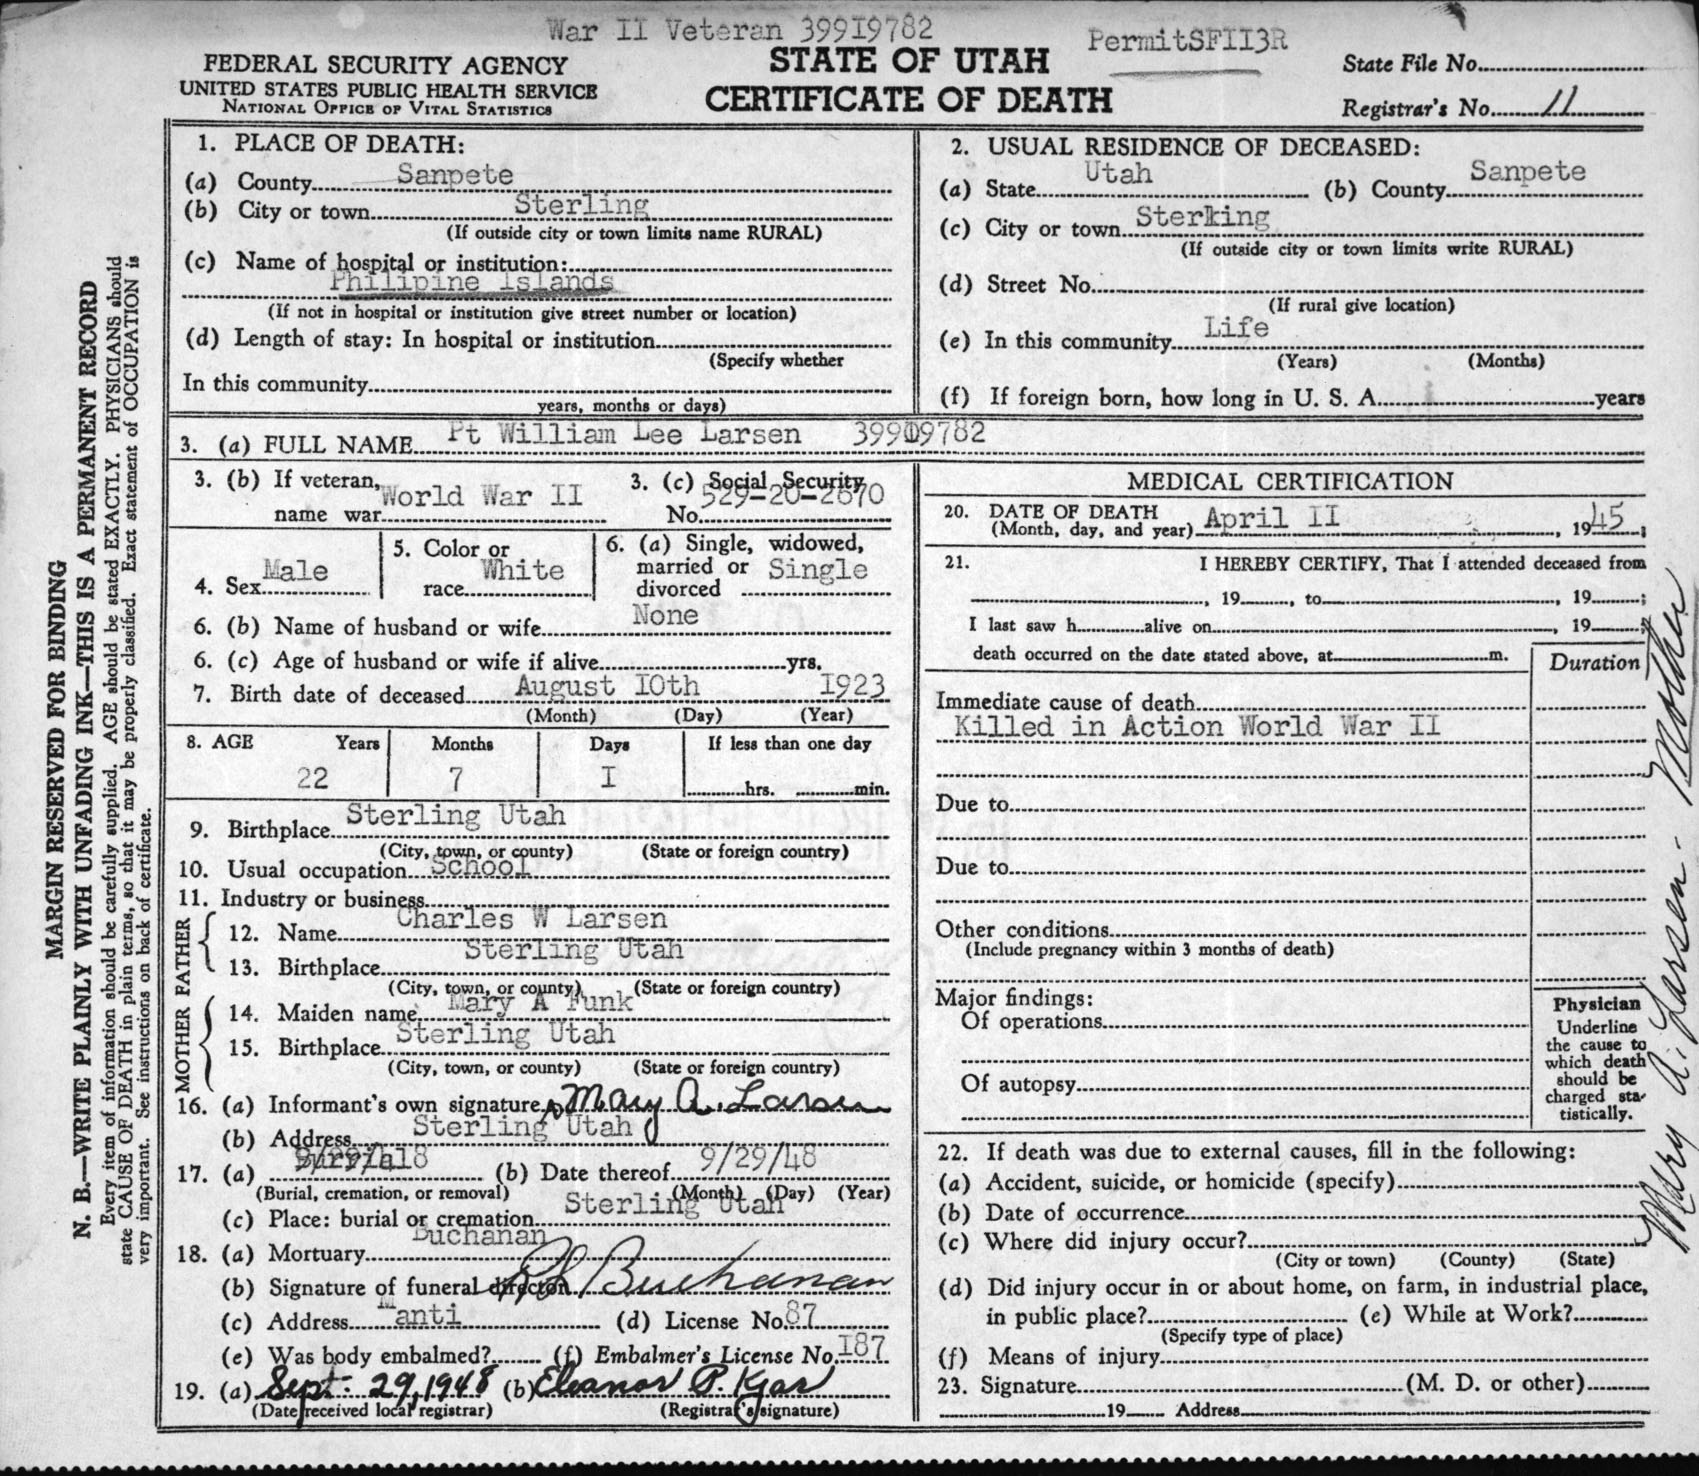 War II Veteran 399I9782
PermitSFII3R
FEDERAL SECURITY AGENCY
UNITED STATES PUBLIC HEALTH SERVICE
NATIONAL OFFICE OF VITAL STATISTICS
STATE OF UTAH
CERTIFICATE OF DEATH
State File No.
Registrar's No. 11
MARGIN RESERVED FOR BINDING
N. B.—WRITE PLAINLY WITH UNFADING INK—THIS IS A PERMANENT RECORD
Every item of information should be carefully supplied. AGE should be stated EXACTLY. PHYSICIANS should
state CAUSE OF DEATH in plain terms, so that it may be properly classified. Exact statement of OCCUPATION is
very important. See instructions on back of certificate.
1. PLACE OF DEATH:
(a) County Sanpete
(b) City or town Sterling
(If outside city or town limits name RURAL)
(c) Name of hospital or institution:
Philipine Islands
(If not in hospital or institution give street number or location)
(d) Length of stay: In hospital or institution
(Specify whether
In this community
years, months or days)
2. USUAL RESIDENCE OF DECEASED:
(a) State Utah (b) County Sanpete
(c) City or town Sterking
(If outside city or town limits write RURAL)
(d) Street No.
(If rural give location)
(e) In this community Life
(Years) (Months)
(f) If foreign born, how long in U. S. A. years
3. (a) FULL NAME Pt William Lee Larsen 39919782
3. (b) If veteran, name war World War II
3. (c) Social Security No. 529-20-2670
4. Sex Male
5. Color or race White
6. (a) Single, widowed, married or divorced Single
6. (b) Name of husband or wife None
6. (c) Age of husband or wife if alive yrs.
7. Birth date of deceased August IOth 1923
(Month) (Day) (Year)
8. AGE Years Months Days If less than one day
22 7 I hrs. min.
9. Birthplace Sterling Utah
(City, town, or county) (State or foreign country)
10. Usual occupation School
11. Industry or business
FATHER
12. Name Charles W Larsen
13. Birthplace Sterling Utah
(City, town, or county) (State or foreign country)
MOTHER
14. Maiden name Mary A Funk
15. Birthplace Sterling Utah
(City, town, or county) (State or foreign country)
16. (a) Informant's own signature Mary A. Larsen
(b) Address Sterling Utah
17. (a) Burrial (b) Date thereof 9/29/48
(Burial, cremation, or removal) (Month) (Day) (Year)
(c) Place: burial or cremation Sterling Utah
18. (a) Mortuary Buchanan
(b) Signature of funeral director Buchanan
(c) Address Manti (d) License No. 87
(e) Was body embalmed? (f) Embalmer's License No. I87
19. (a) Sept. 29, 1948 (b) Eleanor P. Kjar
(Date received local registrar) (Registrar's signature)
MEDICAL CERTIFICATION
20. DATE OF DEATH
(Month, day, and year) April II, 1945;
21. I HEREBY CERTIFY, That I attended deceased from
, 19 , to , 19 ;
I last saw h alive on , 19 ;
death occurred on the date stated above, at m.
Duration
Immediate cause of death
Killed in Action World War II
Due to
Due to
Other conditions
(Include pregnancy within 3 months of death)
Major findings:
Of operations
Of autopsy
Physician
Underline
the cause to
which death
should be
charged sta-
tistically.
22. If death was due to external causes, fill in the following:
(a) Accident, suicide, or homicide (specify)
(b) Date of occurrence
(c) Where did injury occur?
(City or town) (County) (State)
(d) Did injury occur in or about home, on farm, in industrial place,
in public place? (e) While at Work?
(Specify type of place)
(f) Means of injury
23. Signature (M. D. or other)
19 Address
Mary A. Larsen - Mother